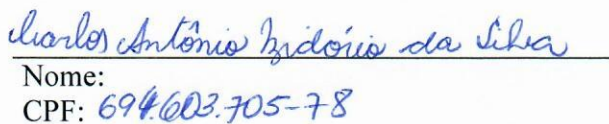 Carlos Antônio Izidório da Silva
Nome:
CPF: 694.603.705-78